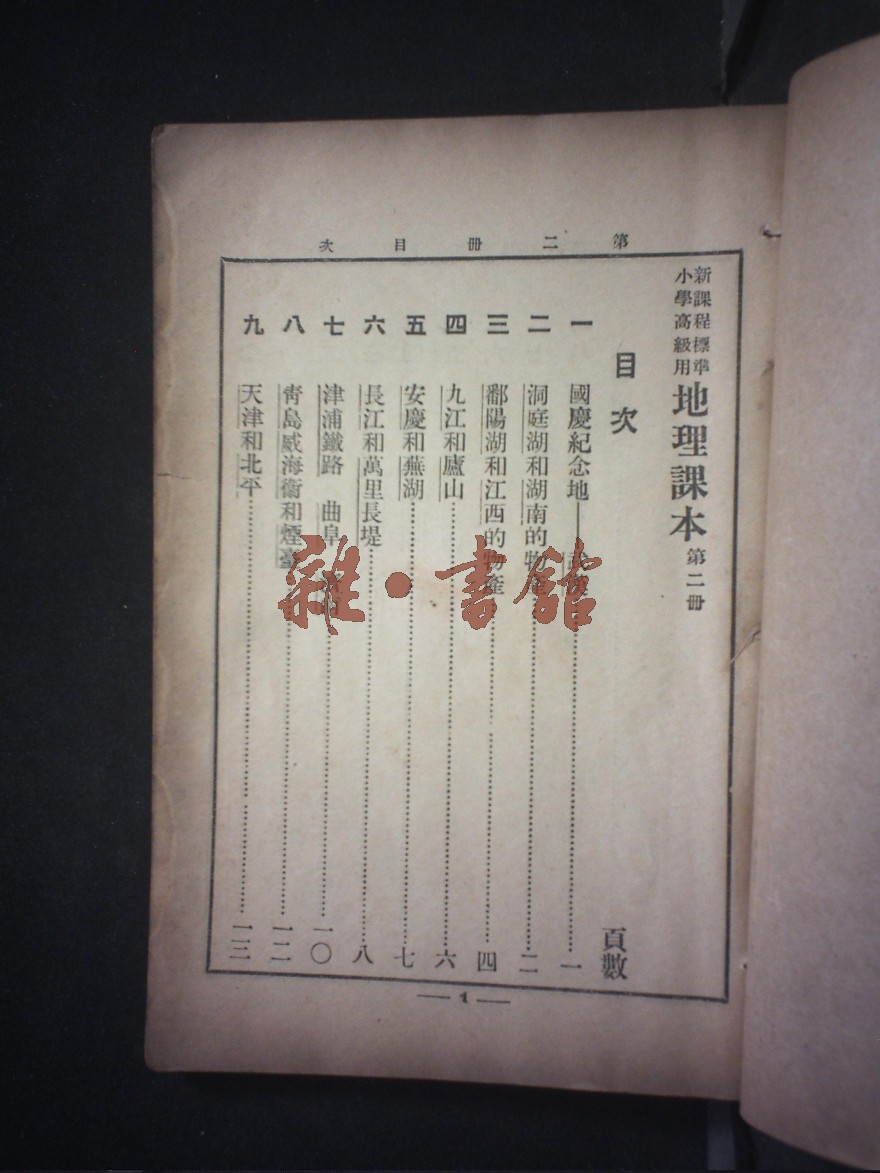 第二冊目次
新課程標準
小學高級用
地理課本 第二冊
目次
頁數
一 國慶紀念地——武漢……一
二 洞庭湖和湖南的物產……二
三 鄱陽湖和江西的物產……四
四 九江和廬山……六
五 安慶和蕪湖……七
六 長江和萬里長堤……八
七 津浦鐵路 曲阜……一〇
八 靑島威海衞和煙臺……一二
九 天津和北平……一三
1
雜·書館